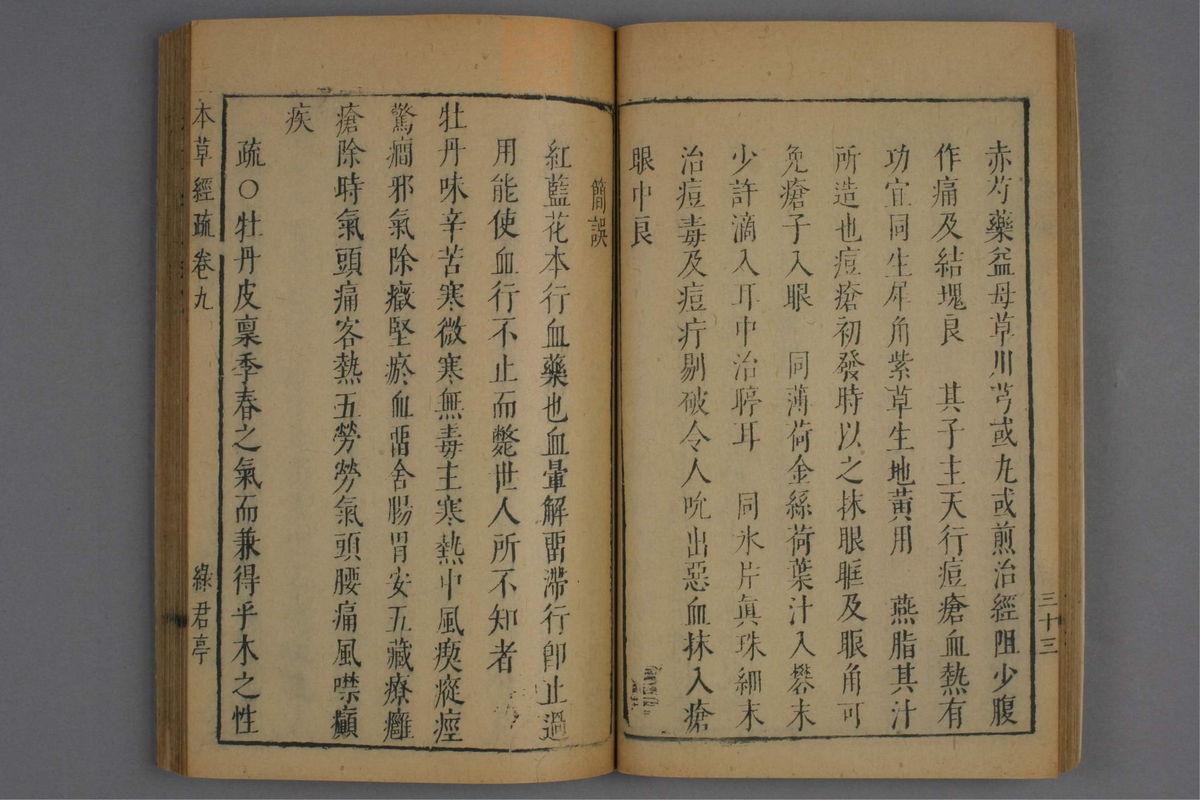 赤芍藥益母草川芎或丸或煎治經阻少腹
作痛及結塊良　其子主天行痘瘡血熱有
功宜同生犀角紫草生地黃用　燕脂其汁
所造也痘瘡初發時以之抹眼眶及眼角可
免瘡子入眼　同薄荷金絲荷葉汁入礬末
少許滴入耳中治聤耳　同氷片眞珠細末
治痘毒及痘疔剔破令人吮出惡血抹入瘡
眼中良
三十三
簡誤
紅藍花本行血藥也血暈解畱滯行卽止過
用能使血行不止而斃世人所不知者
牡丹味辛苦寒微寒無毒主寒熱中風瘈瘲痙
驚癎邪氣除癥堅瘀血畱舍腸胃安五藏療癰
瘡除時氣頭痛客熱五勞勞氣頭腰痛風噤癲
疾
疏○牡丹皮稟季春之氣而兼得乎木之性
本草經疏卷九
綠君亭